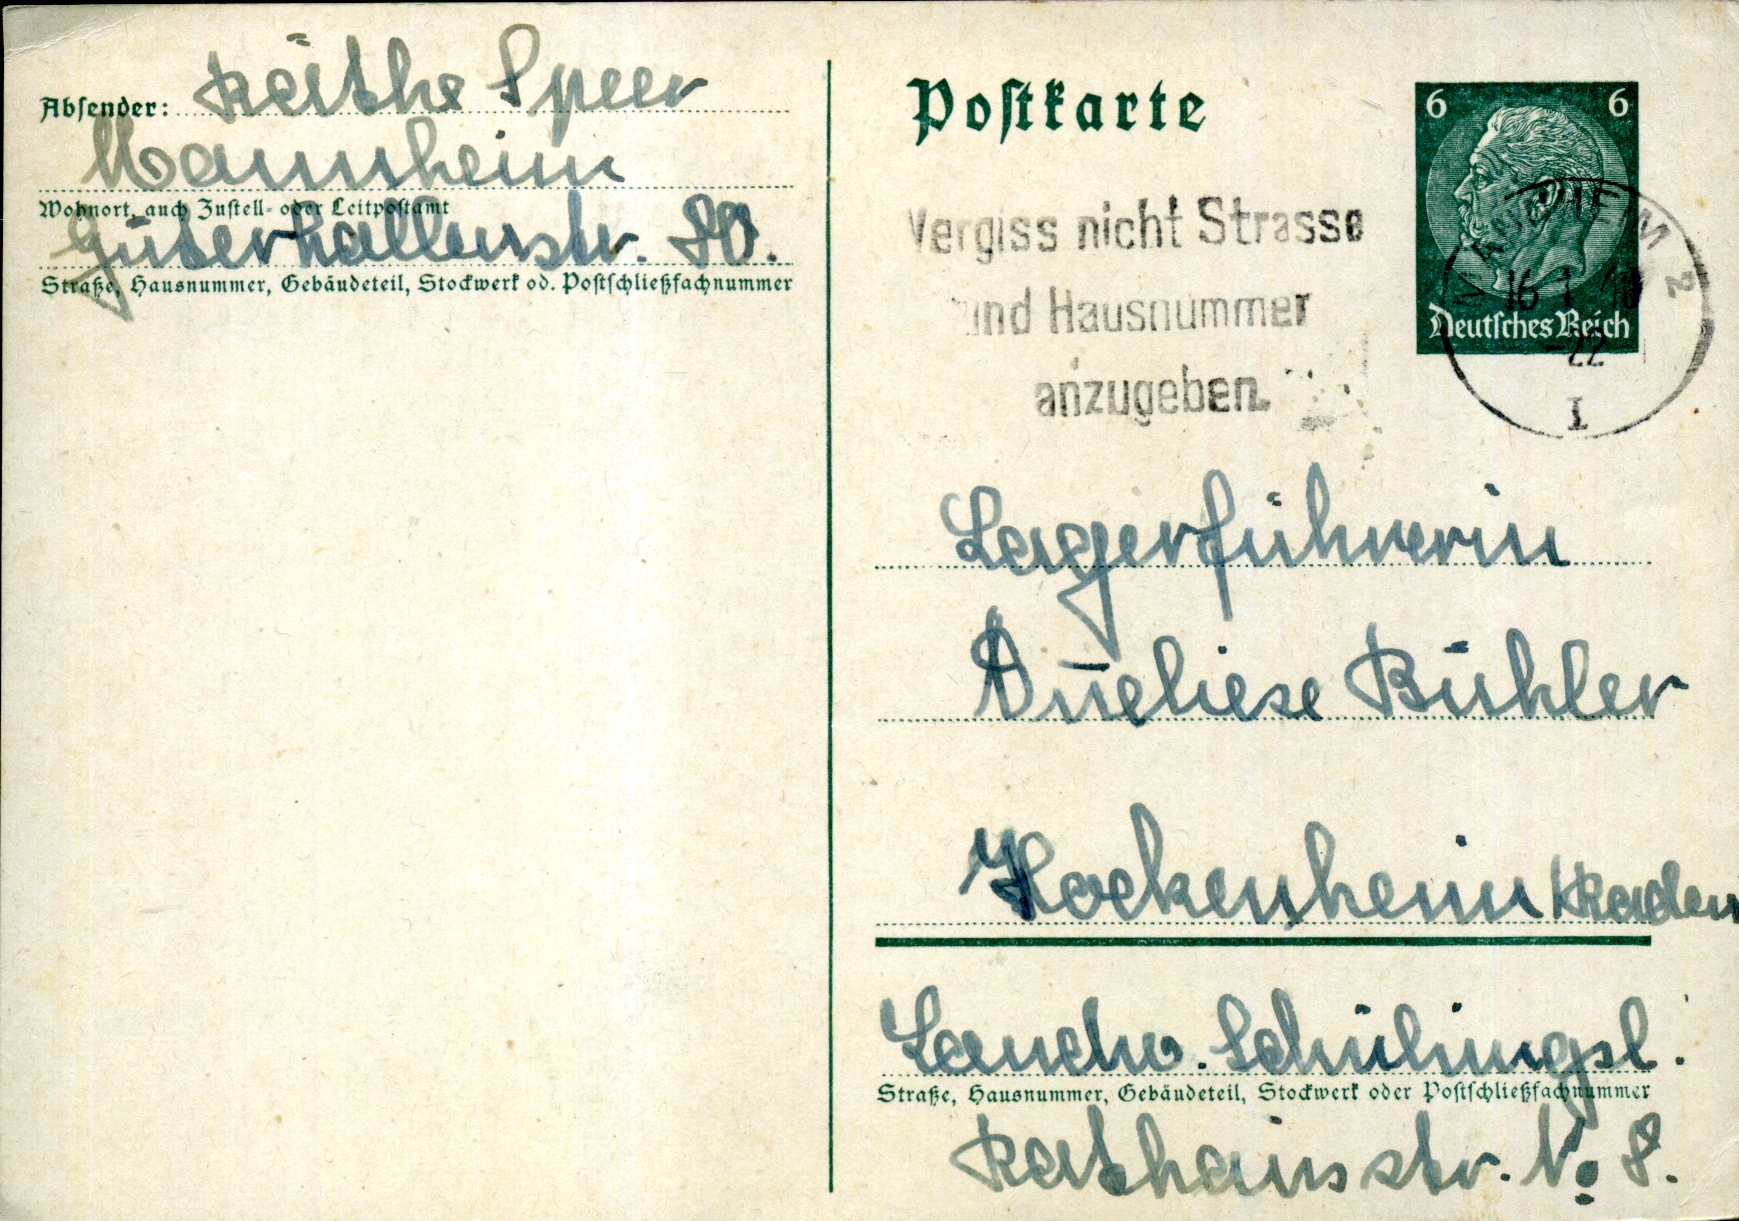 Absender: Käthe Speer
Mannheim
Wohnort, auch Zustell- oder Leitpostamt
Güterhallenstr. 80.
Straße, Hausnummer, Gebäudeteil, Stockwerk od. Postschließfachnummer
Postkarte
6 6
Deutsches Reich
Vergiss nicht Strasse
und Hausnummer
anzugeben.
MANNHEIM 2
16 1
-22
I
Lagerführerin
Anneliese Bühler
Hockenheim /Baden
Landw. Schulungsl.
Straße, Hausnummer, Gebäudeteil, Stockwerk oder Postschließfachnummer
Rathausstr. No 8.